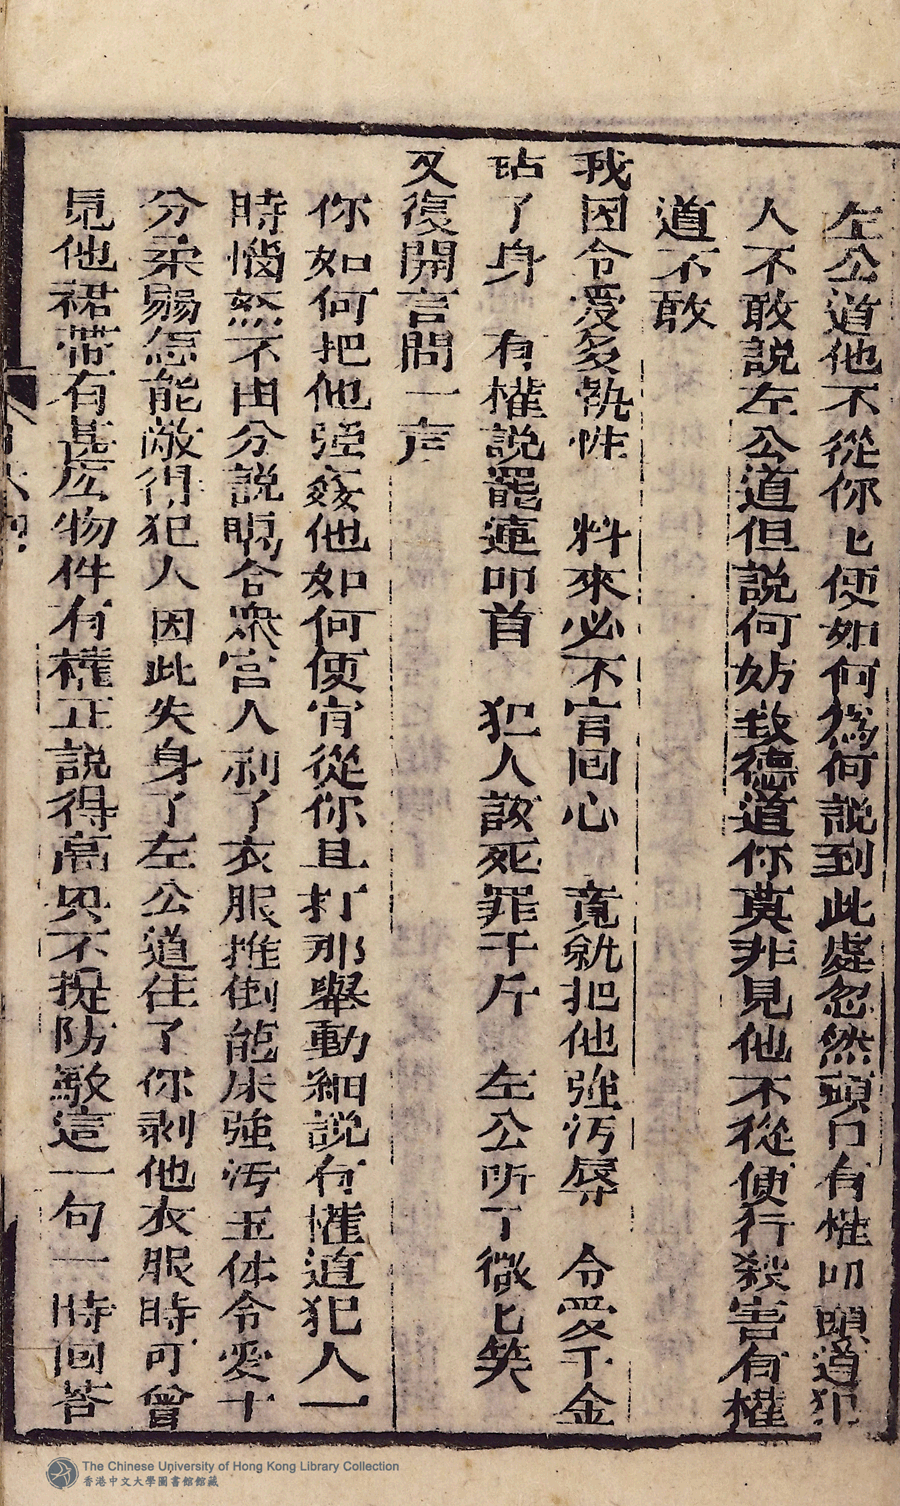 左公道他不從你匕便如何爲何說到此處忽然頭口有權叩頭道犯
人不敢說左公道但說何妨致德道你莫非見他不從便行殺害有權
道不敢
我因令愛多執性　料來必不肯回心　竟就把他強污辱　令愛千金
玷了身　有權說罷連叩首　犯人該死罪千斤　左公听了微匕笑
又復開言問一声
你如何把他强姦他如何便肯從你且打那舉動細說有權道犯人一
時惱怒不由分說眼合衆官人剥了衣服推倒龍床強污玉体令愛十
分柔弱怎能敵得犯人因此失身了左公道住了你剥他衣服時可曾
見他裙帶有甚広物件有權正說得高兴不提防敏這一句一時回答
The Chinese University of Hong Kong Library Collection
香港中文大學圖書館館藏